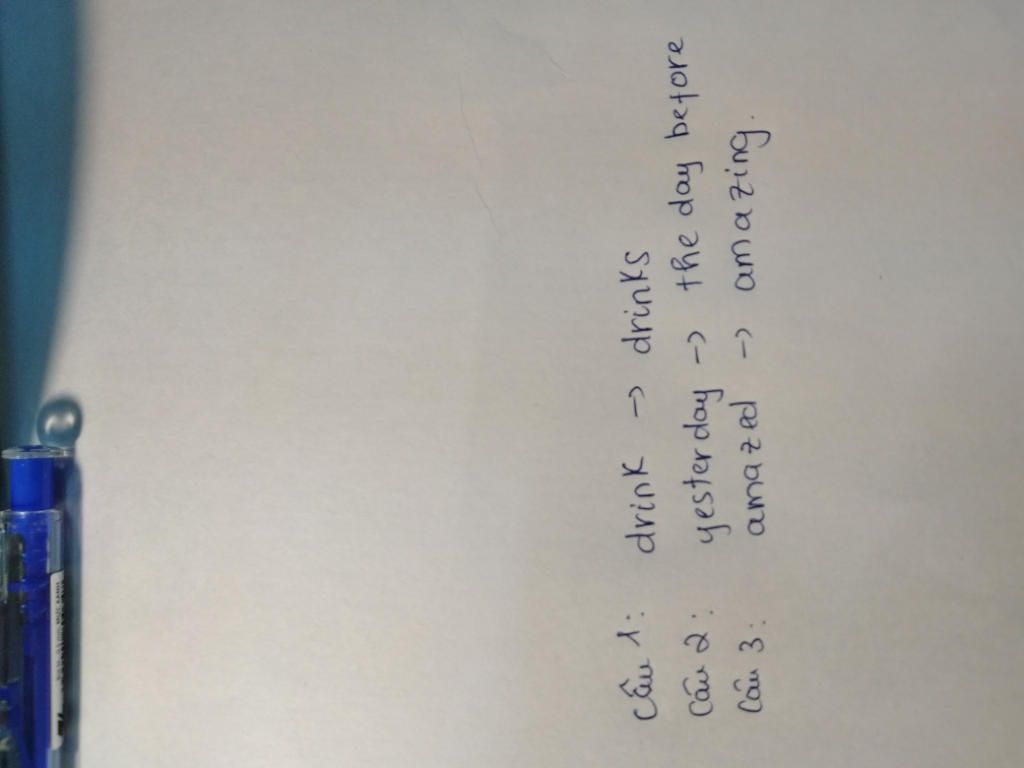 Câu 1: drink -> drinks
Câu 2: yesterday -> the day before
Câu 3: amazed -> amazing.